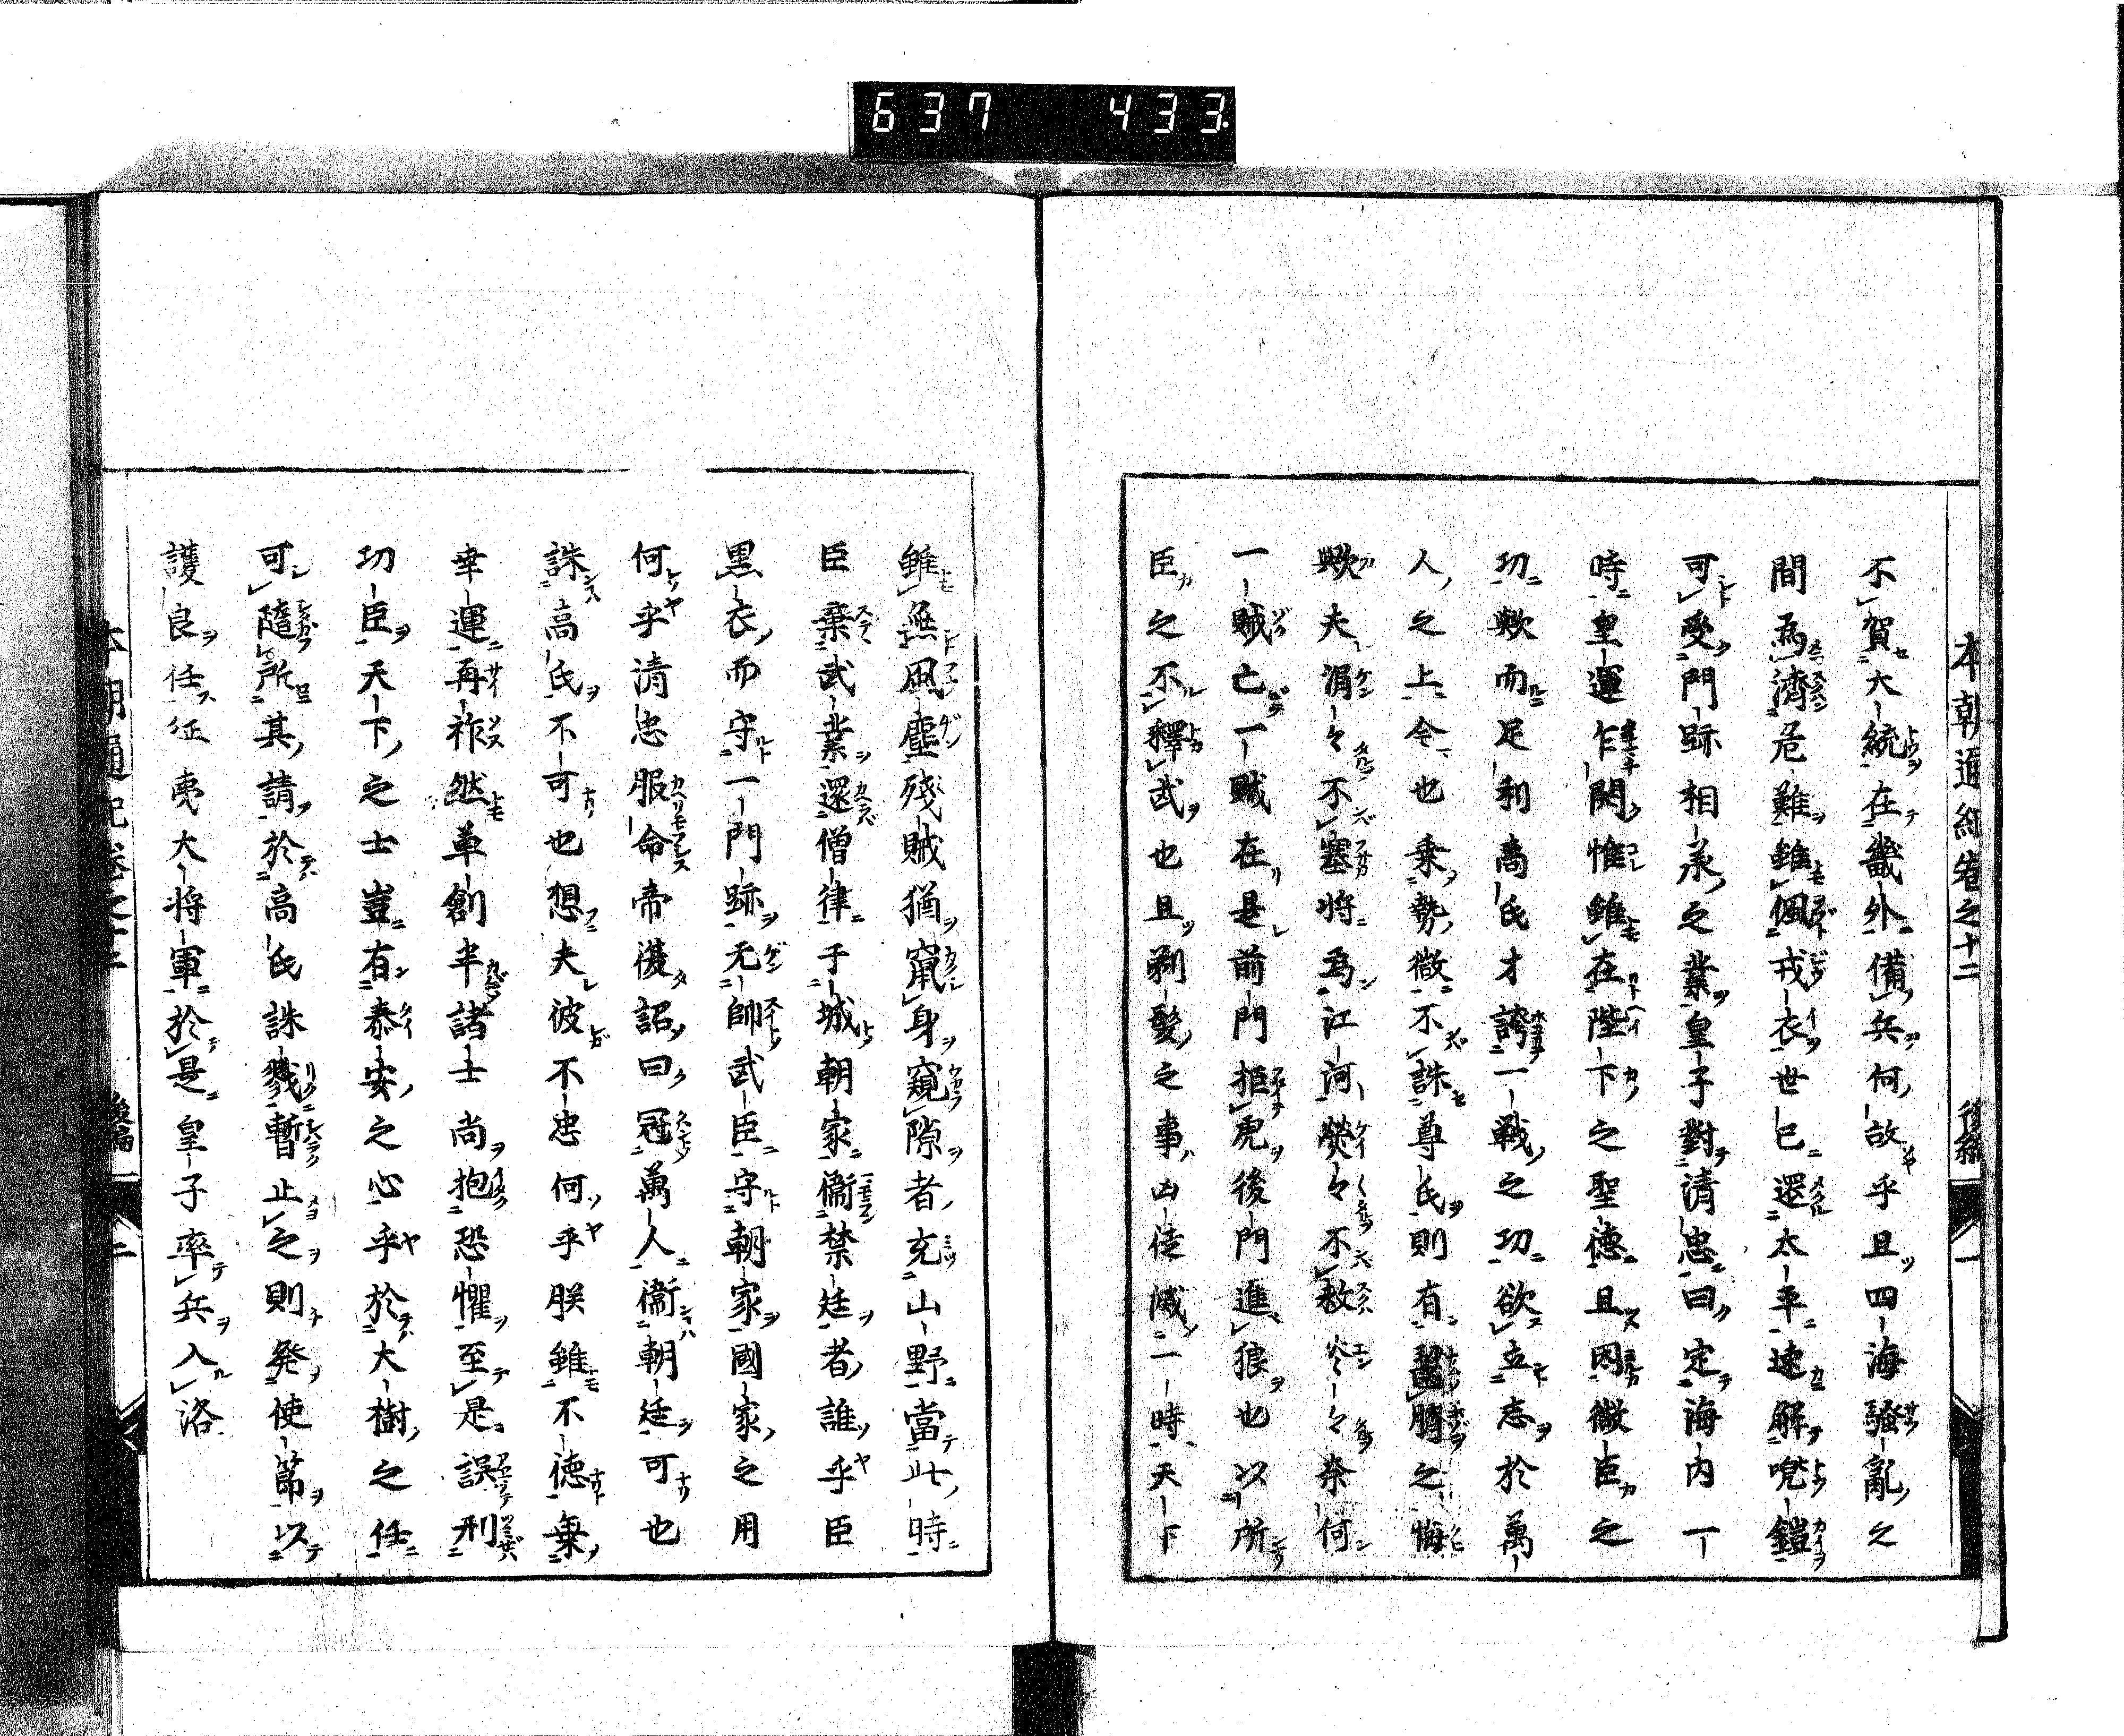 637 433
本朝通紀卷之十二 後編 一
不賀大統在畿外備兵何故乎且四海騷亂之
間為濟危難雖佩戎衣世已還太平速解兜鎧
可受門跡相承之業皇子對清忠曰定海内一
時皇運乍開惟雖在陛下之聖德且因微臣之
功歟而足利高氏才誇一戰之功欲立志於萬
人之上令也乘勢微不誅尊氏則有齧臍之悔
歟夫涓々不塞將為江河熒々不救炎々奈何
一賊亡一賊在是前門拒虎後門進狼也以所
臣之不釋武也且剃髮之事凶徒滅一時天下
雖無風塵殘賊猶竄身窺隙者充山野當此時
臣棄武業還僧律于城朝家衞禁廷者誰乎臣
黒衣而守一門跡无帥武臣守朝家國家之用
何乎清忠服命帝復詔曰冠萬人衞朝廷可也
誅高氏不可也想夫彼不忠何乎朕雖不德棄
幸運再祚然草創半諸士尚抱恐懼至是誤刑
功臣天下之士豈有泰安之心乎於大樹之任
可隨所其請於高氏誅戮暫止之則発使節以
護良任征夷大將軍於是皇子率兵入洛
本朝通紀卷之十二 後編 二